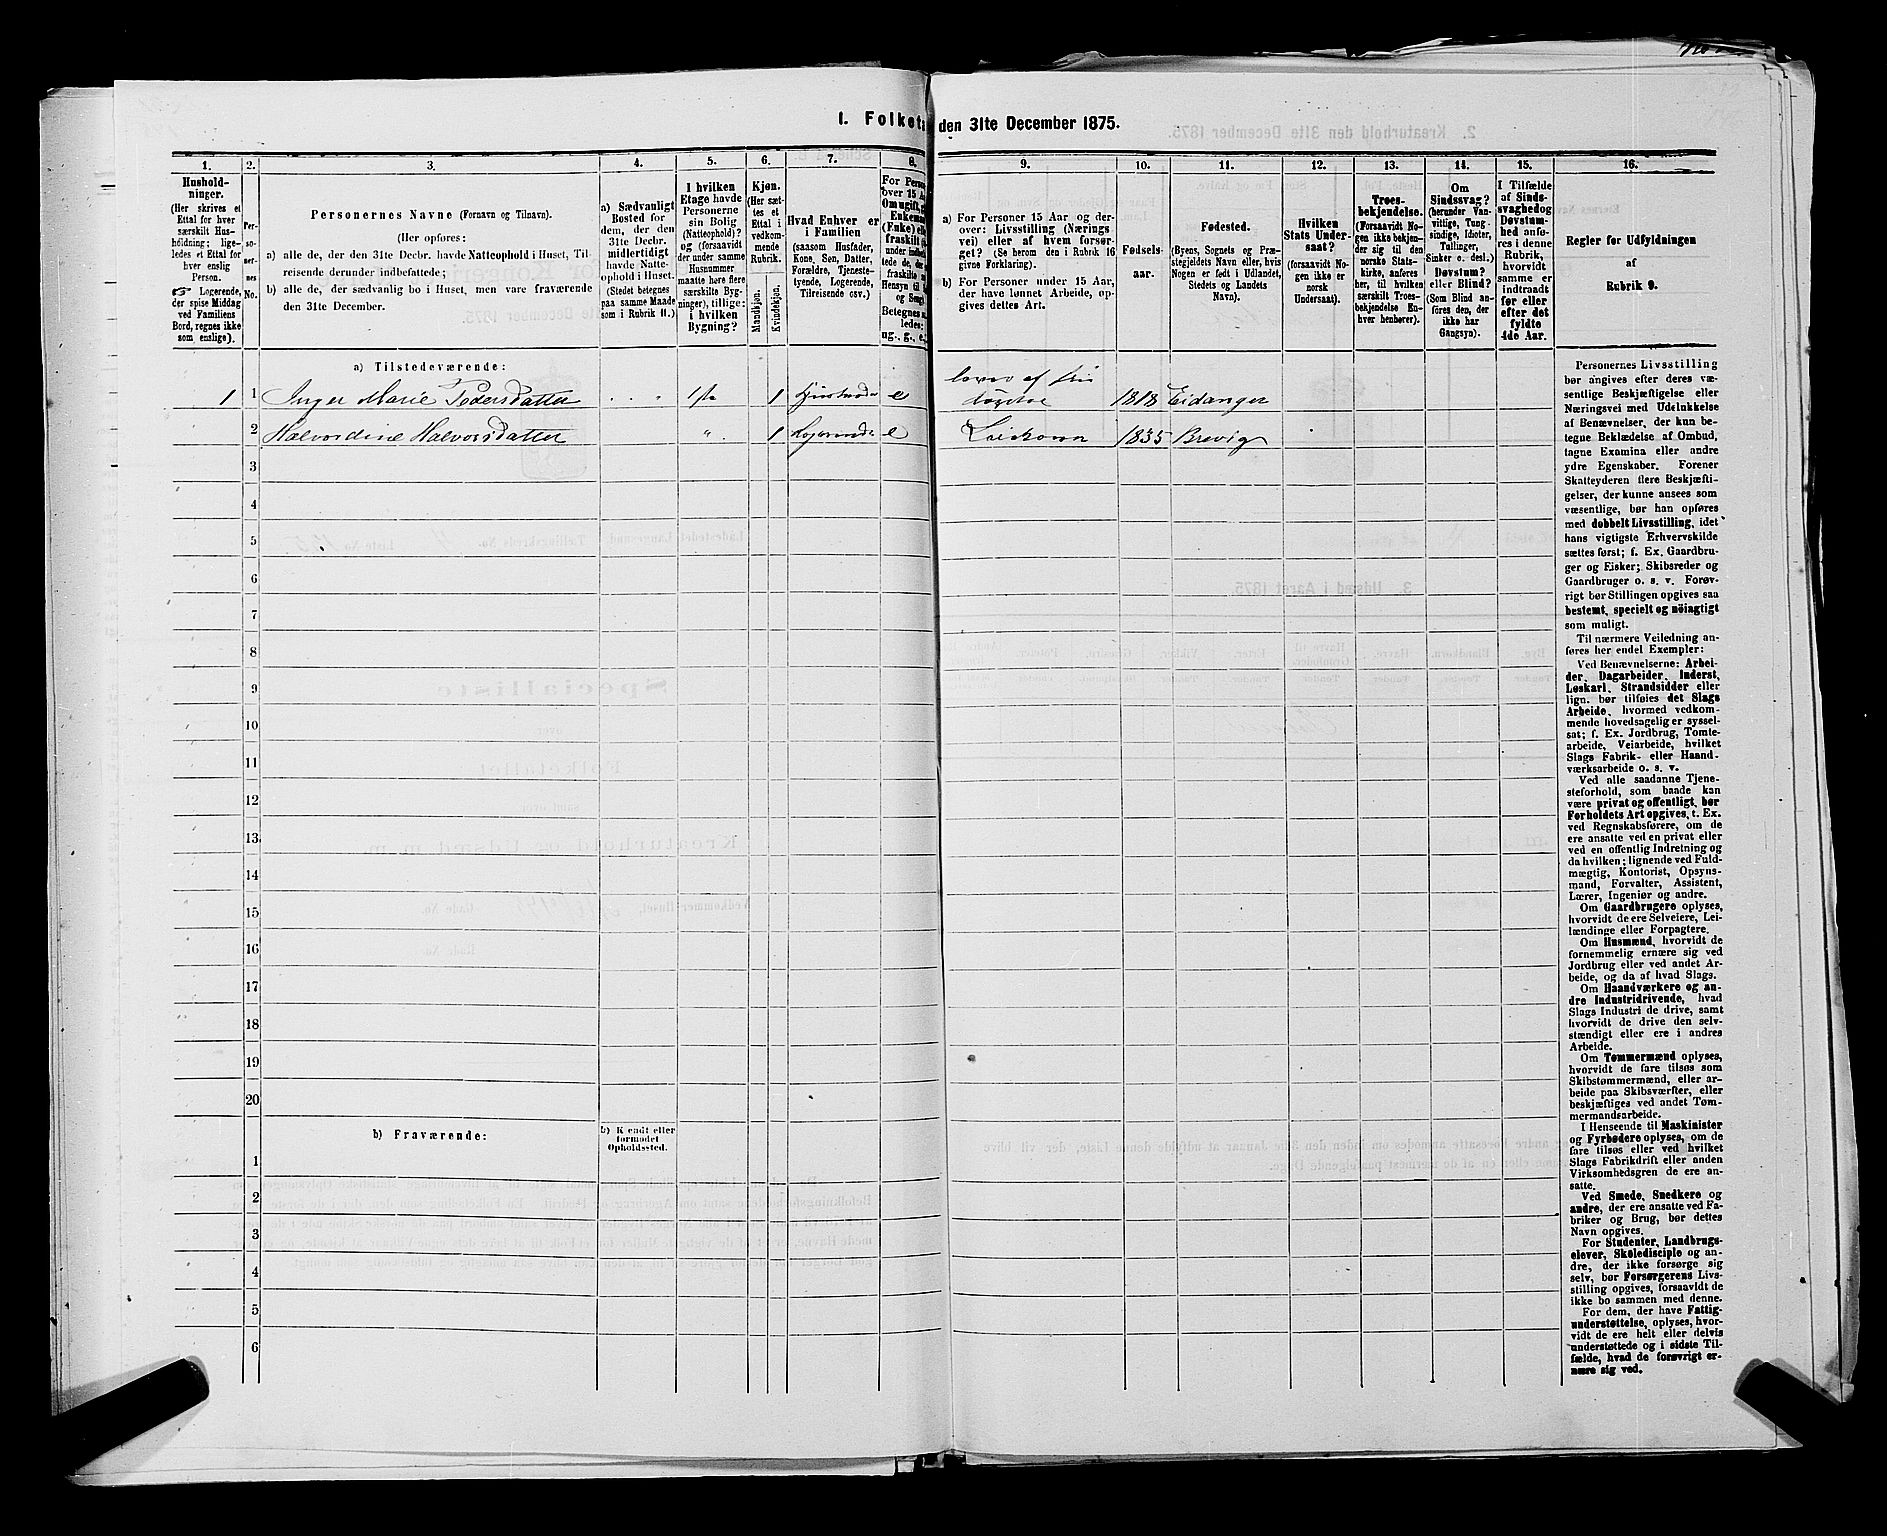 1. Folketæ
den 31te December 1875.
1.
2.
3.
4.
5.
6.
7.
8.
9.
10.
11.
12.
13.
14.
15.
16.
Hushold-
ninger.
(Her skrives et
Ettal for hver
særskilt Hus-
holdning; lige-
ledes et Ettal for
hver enslig
Person.
☞ Logerende,
der spise Middag
ved Familiens
Bord, regnes ikke
som enslige).
Per-
so-
ner-
nes
No.
Personernes Navne (Fornavn og Tilnavn).
(Her opføres:
a) alle de, der den 31te Decbr. havde Natteophold i Huset, Til-
reisende derunder indbefattede;
b) alle de, der sædvanlig bo i Huset, men vare fraværende
den 31te December.
a) Sædvanligt
Bosted for
dem, der den
31te Decbr.
midlertidigt
havde Natte-
ophold i Huset.
(Stedet betegnes
paa samme Maade
som i Rubrik 11.)
I hvilken
Etage havde
Personerne
sin Bolig
(Natteophold)?
og (forsaavidt
der under samme
Husnummer
maatte høre flere
særskilte Byg-
ninger), tillige:
i hvilken
Bygning?
Kjøn.
(Her sæt-
tes et
Ettal i
vedkom-
mende
Rubrik.
Mandkjøn.
Kvindekjøn.
Hvad Enhver er
i Familien
(saasom Husfader,
Kone, Søn, Datter,
Forældre, Tjeneste-
tyende, Logerende,
Tilreisende osv.)
For Perso
over 15 Aa
Om ugift,
Enkema
(Enke) elle
fraskilt
ledes:
ug., g., e.,
a) For Personer 15 Aar og der-
over: Livsstilling (Nærings
vei) eller af hvem forsør-
get? (Se herom den i Rubrik 16
givne Forklaring).
b) For Personer under 15 Aar,
der have lønnet Arbeide, op-
gives dettes Art.
Fødsels-
aar.
Fødested.
(Byens, Sognets og Præ-
stegjeldets Navn eller, hvis
Nogen er født i Udlandet,
Stedets og Landets
Navn).
Hvilken
Stats Under-
saat?
(forsaavidt No-
gen ikke er
norsk
Undersaat).
Troes-
bekjendelse.
(Forsaavidt No-
gen ikke bekjen-
der sig til den
norske Stats-
kirke, anføres
her, til hvilken
særskilt Troes-
bekjendelse En-
hver henhører).
Om
Sindssvag?
(herunder Van-
vittige, Tung-
sindige, Idioter,
Tullinger,
Sinker o. desl.)
Døvstum?
eller Blind?
(Som Blind an-
føres den, der
ikke har
Gangsyn).
I Tilfælde
af Sinds-
svaghed og
Døvstum-
hed anfø-
res i denne
Rubrik,
hvorvidt
samme er
indtraadt
før eller
efter det
fyldte
4de Aar.
Regler for Udfyldningen
af
Rubrik 9.
a) Tilstedeværende:
1 1 Inger Marie Pedersdatter 1ste 1 e 1818 Eidanger
2 Halvordine Halvorsdatter " 1 Logerende e 1835 Brevig
3
4
5
6
7
8
9
10
11
12
13
14
15
16
17
18
19
20
b) Fraværende:
b) Kjendt eller
formodet
Opholdssted.
1
2
3
4
5
6
Personernes Livsstilling
bør angives efter deres væ-
sentlige Beskjæftigelse eller
Næringsvei med Udelukkelse
af Benævnelser, der kun be-
tegne Beklædelse af Ombud,
tagne Examina eller andre
ydre Egenskaber. Forener
Skatteyderen flere Beskjæfti-
gelser, der kunne ansees som
væsentlige, bør han opføres
med dobbelt Livsstilling, idet
hans vigtigste Erhvervskilde
sættes først; f. Ex. Gaardbru-
ger og Fisker; Skibsreder og
Gaardbruger o. s. v. Forøv-
rigt bør Stillingen opgives saa
bestemt, specielt og nöiagtigt
som muligt.
Til nærmere Veiledning an-
føres her endel Exempler:
Ved Benævnelserne: Arbei-
der, Dagarbeider, Inderst,
Løskarl, Strandsidder eller
lign. bør tilføies det Slags
Arbeide, hvormed vedkom-
mende hovedsagelig er syssel-
sat; f. Ex. Jordbrug, Tomte-
arbeide, Veiarbeide, hvilket
Slags Fabrik- eller Haand-
værksarbeide o. s. v.
Ved alle saadanne Tjene-
steforhold, som baade kan
være privat og offentligt, bør
Forholdets Art opgives, t. Ex.
ved Regnskabsførere, om de
ere ansatte ved en privat eller
ved en offentlig Indretning og
da hvilken; lignende ved Fuld-
mægtig, Kontorist, Opsyns-
mand, Forvalter, Assistent,
Lærer, Ingeniør og andre.
Om Gaardbrugere oplyses,
hvorvidt de ere Selveiere, Lei-
lændinge eller Forpagtere.
Om Husmænd, hvorvidt de
fornemmelig ernære sig ved
Jordbrug eller ved andet Ar-
beide, og da af hvad Slags.
Om Haandværkere og an-
dre Industridrivende, hvad
Slags Industri de drive, samt
hvorvidt de drive den selv-
stændigt eller ere i andres
Arbeide.
Om Tømmermænd oplyses,
hvorvidt de fare tilsøs som
Skibstømmermænd, eller ar-
beide paa Skibsværfter, eller
beskjæftiges ved andet Tøm-
mermandsarbeide.
I Henseende til Maskinister
og Fyrbødere oplyses, om de
fare tilsøs eller ved hvilket
Slags Fabrikdrift eller anden
Virksomhedsgren de ere an-
satte.
Ved Smede, Snedkere og
andre, der ere ansatte ved Fa-
briker og Brug, bør dettes
Navn opgives.
For Studenter, Landbrugs-
elever, Skoledisciple og an-
dre, der ikke forsørge sig
selv, bør Forsørgerens Livs-
stilling opgives, forsaavidt de
ikke bo sammen med denne.
For dem, der have Fattig-
understøttelse, oplyses, hvor-
vidt de ere helt eller delvis
understøttede og i sidste Til-
fælde, hvad de forøvrigt er-
nære sig ved.